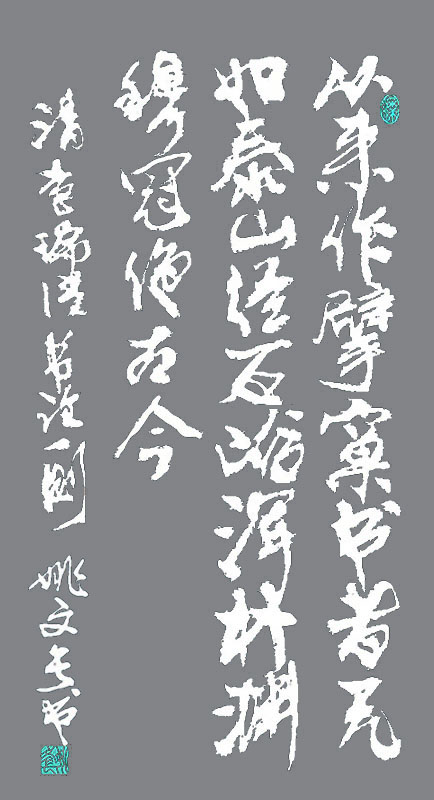 从来作擘窠书者无
如泰山经石峪浑朴渊
穆冠绝古今
清李瑞清书论一则 姚文书